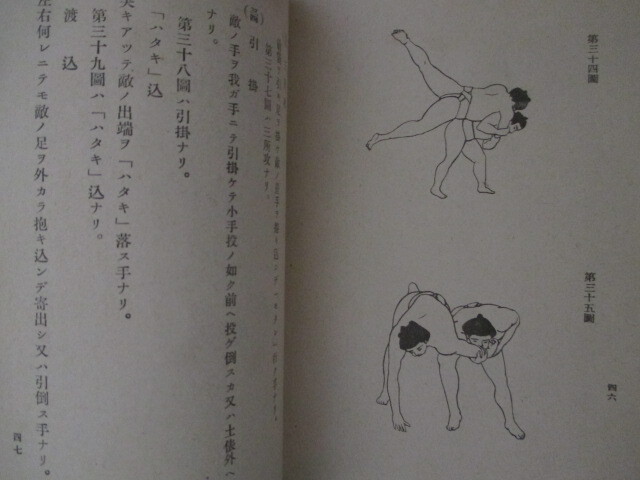 第三十四圖
第三十五圖
四六
第三十七圖ハ三所攻ナリ。
引掛
敵ノ手ヲ我ガ手ニテ引掛ケテ小手投ノ如ク前ヘ投ゲ倒スカ又ハ土俵外ヘ
ナリ。
第三十八圖ハ引掛ナリ。
「ハタキ」込
突キアツテ敵ノ出端ヲ「ハタキ」落ス手ナリ。
第三十九圖ハ「ハタキ」込ナリ。
渡込
左右何レニテモ敵ノ足ヲ外カラ抱キ込ンデ寄出シ又ハ引倒ス手ナリ。
四七